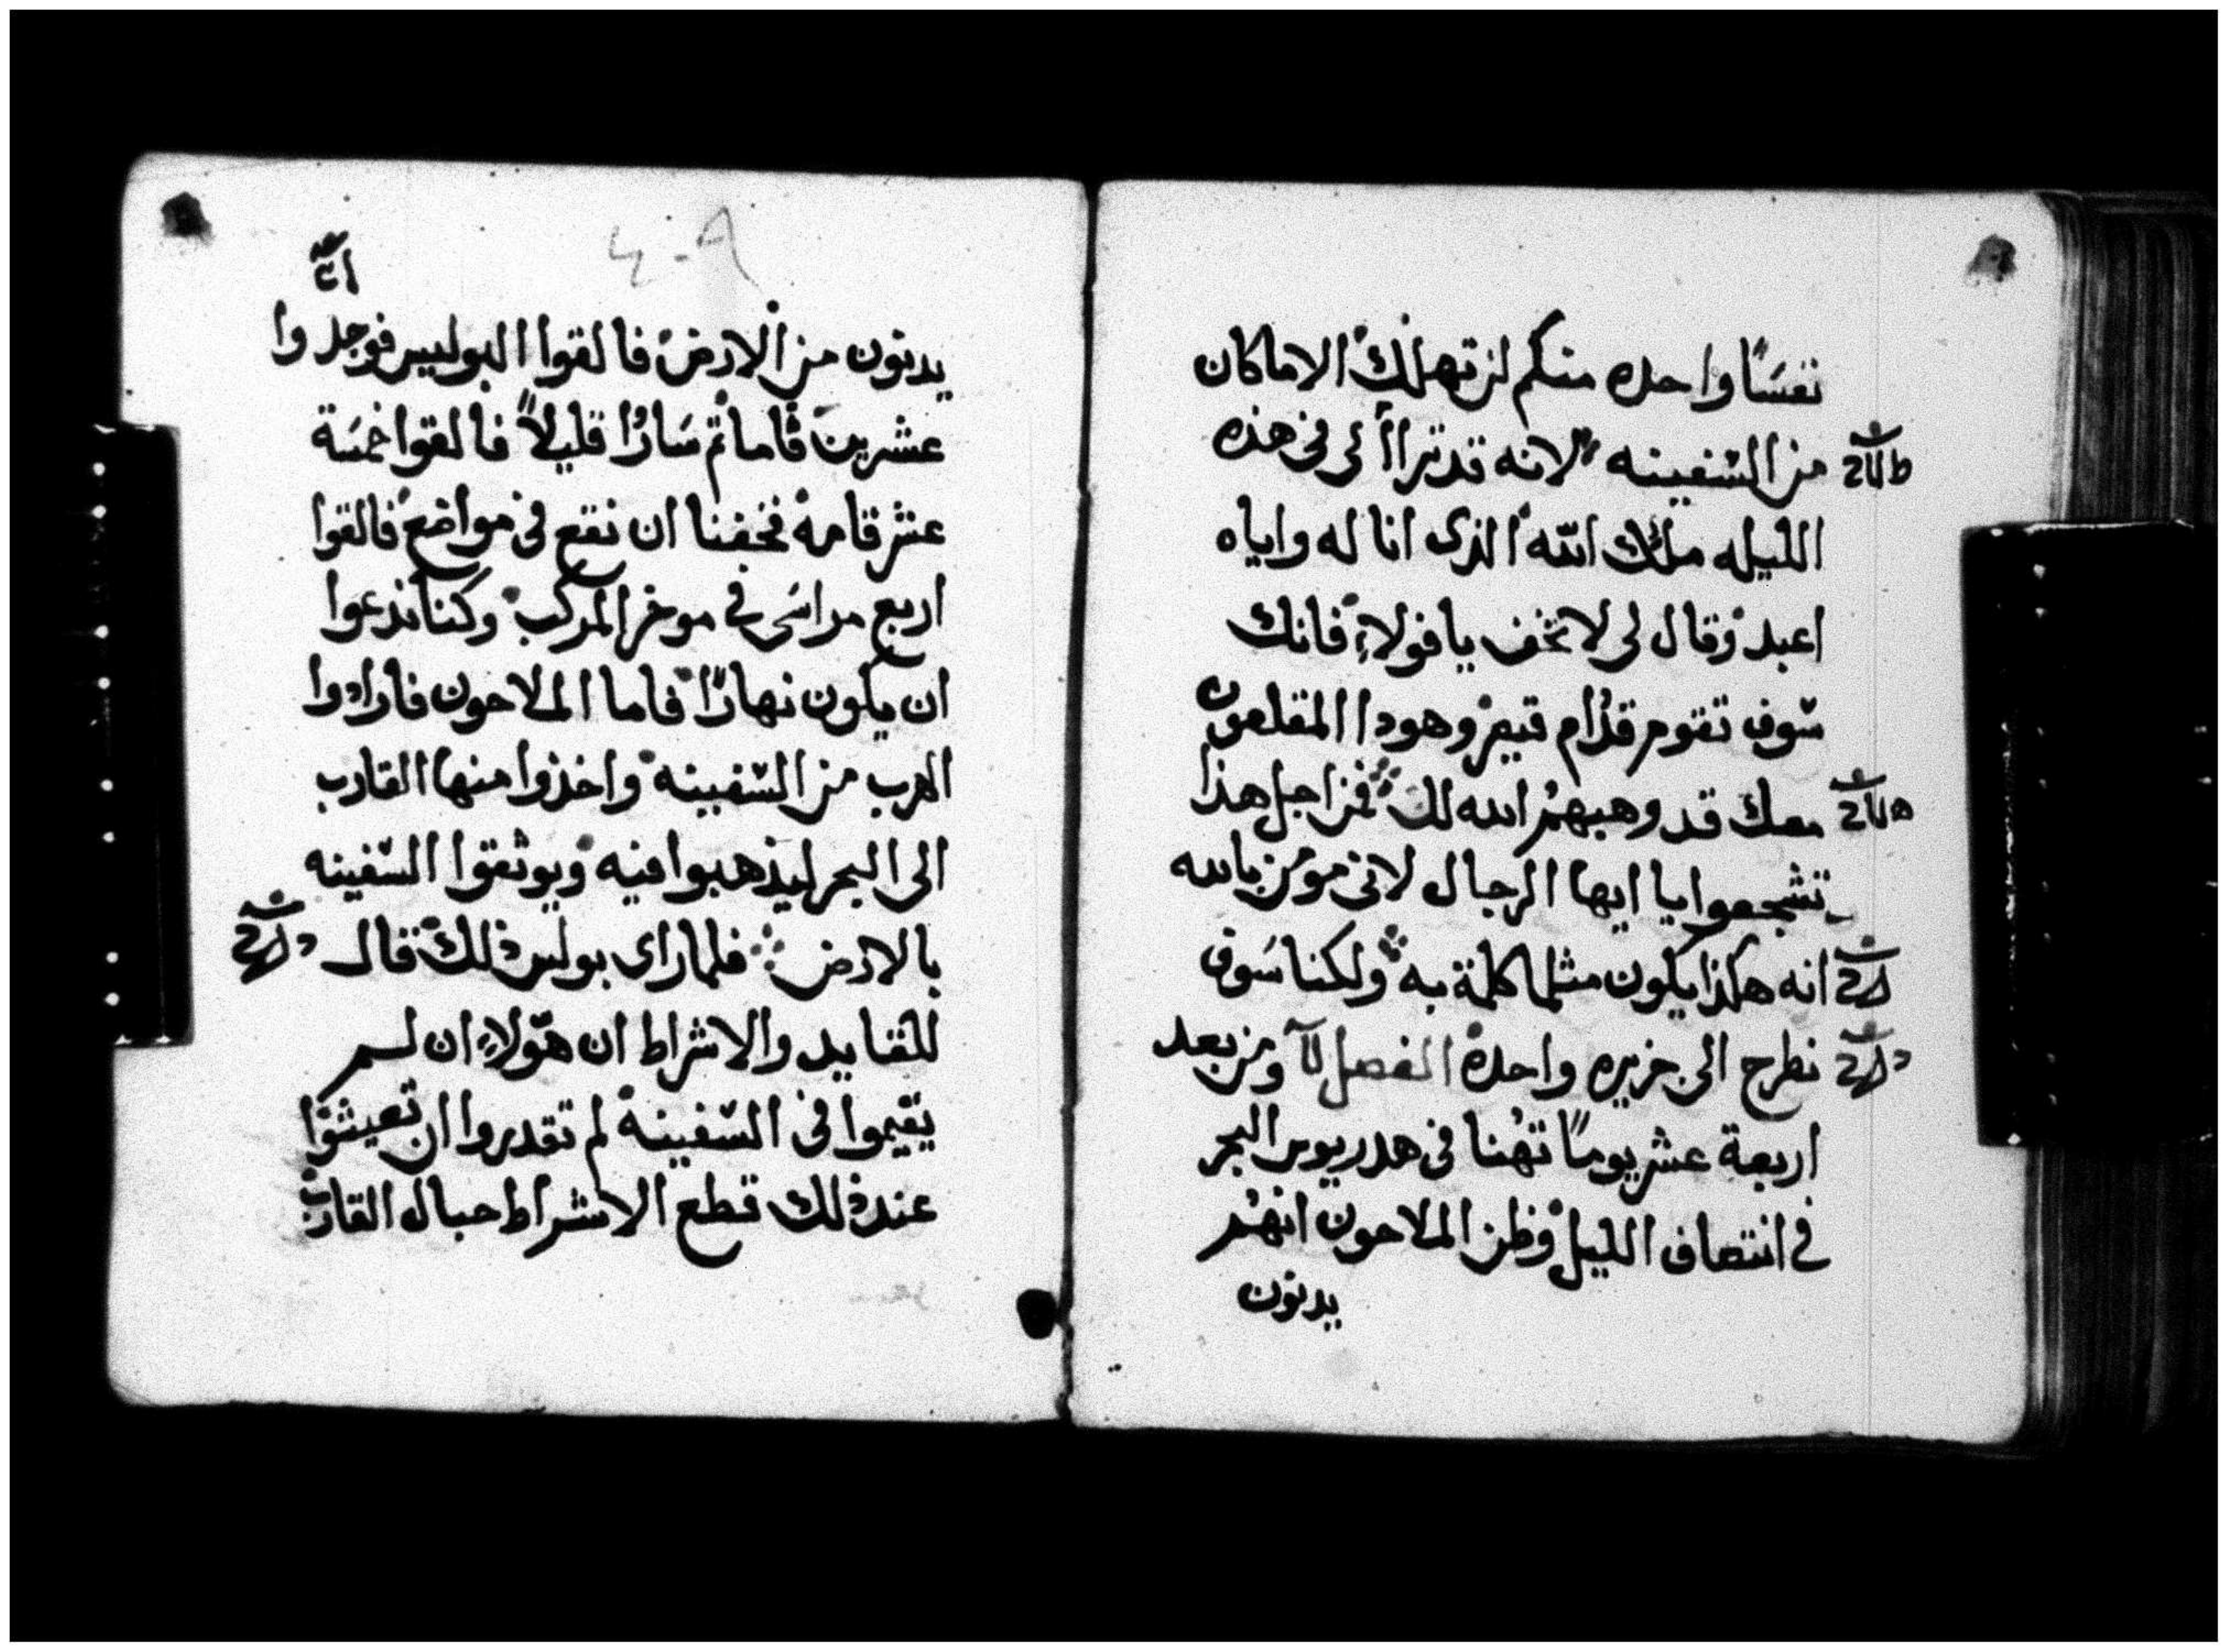 نفسًا واحده منكم لن تهلك الا ماكان
من السفينه لانه قد ترااى لى فى هذه
الليله ملاك الله الذى انا له واياه
اعبد وقال لى لا تخف يا فولاء فانك
سوف تقوم قدام قيصر وهودا المقلعون
معك قد وهبهم الله لك فمن اجل هذا
تشجعوا يا ايها الرجال لانى مومن بالله
انه هكذا يكون مثلما كلمة به ولكنا سوف
نطرح الى جزيره واحده الفصل ومن بعد
اربعة عشر يومًا تهنا فى هدريوس البحر
فى انتصاف الليل وظن الملاحون انهم
يدنون
٤٠٩
يدنون من الارض فالقوا البوليس فوجدوا
عشرين قاما ثم ساروا قليلاً فالقوا خمسة
عشر قامه فخفنا ان نقع فى مواضع فالقوا
اربع مراسى فى موخر المركب وكنا ندعوا
ان يكون نهارًا فاما الملاحون فارادوا
الهرب من السفينه واخذوا منها القارب
الى البحر ليذهبوا فيه ويوثقوا السفينه
بالارض فلما راى بولس ذلك قال
للقايد والاشراط ان هولاء ان لم
يقيموا فى السفينه لم تقدروا ان تعيشوا
عند ذلك قطع الاشراط حبال القارب